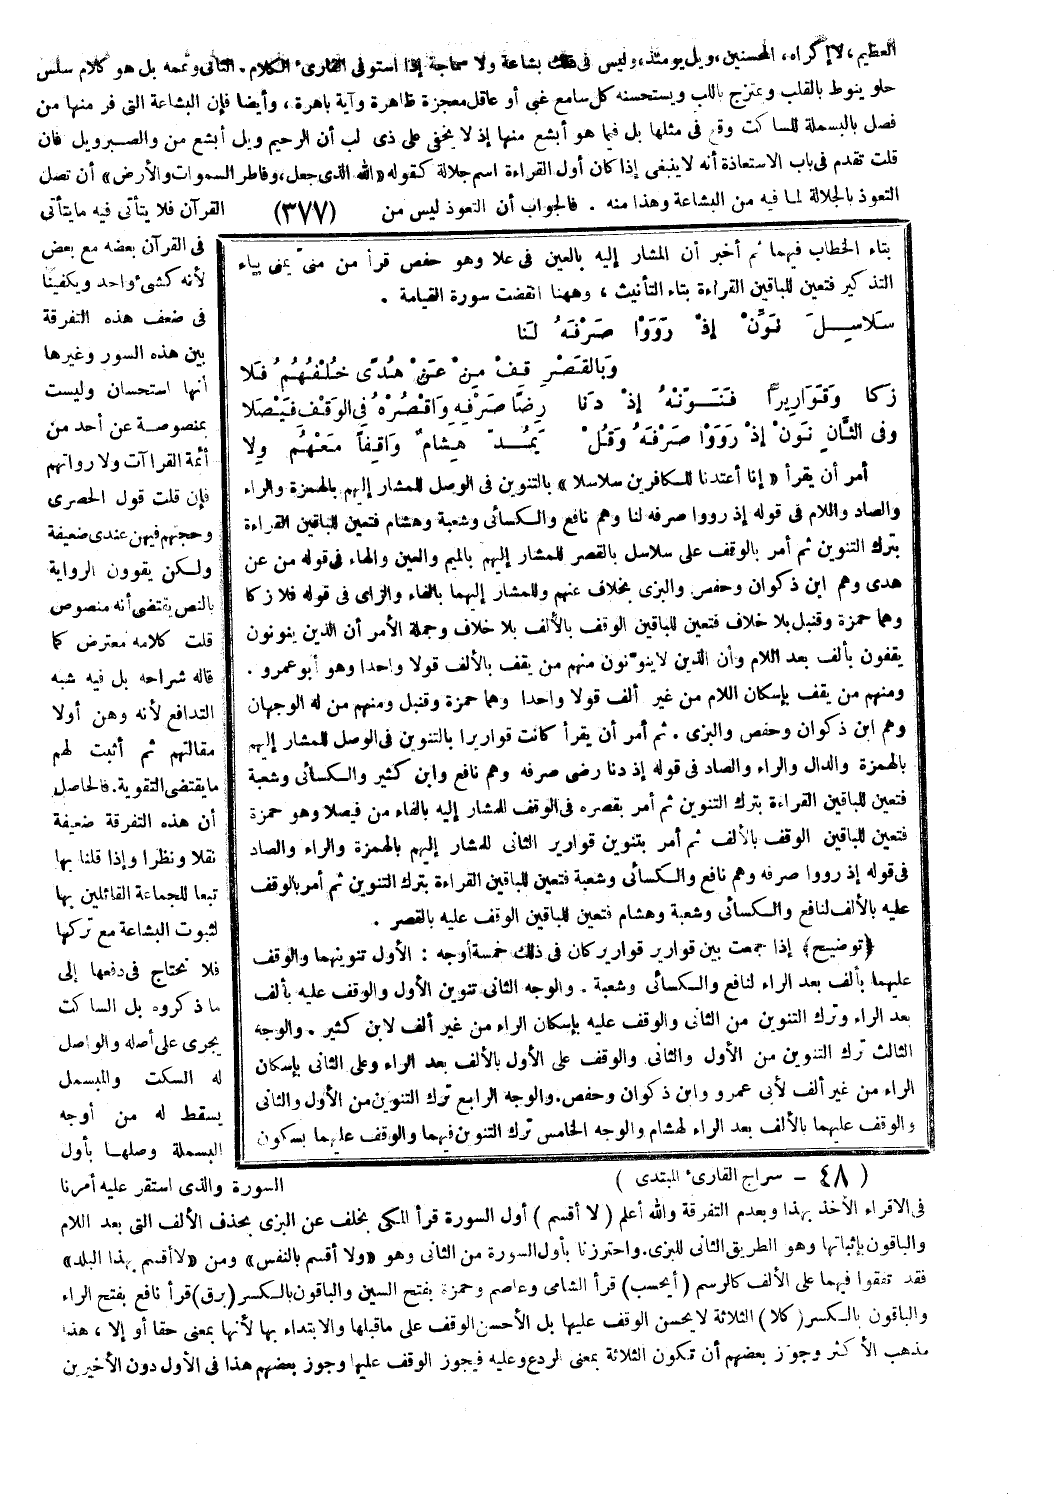 العظيم، لا إكراه، المحسنين، ويل يومئذ، وليس فى ذلك بشاعة ولا سماجة إذا استوفى القارىء الكلام. الثانى وتممه بل هو كلام سلس
حلو ينوط بالقلب ويمتزج باللب ويستحسنه كل سامع غبى أو عاقل معجزة ظاهرة وآية باهرة، وأيضا فإن البشاعة التى فر منها من
فصل بالبسملة للساكت وقع فى مثلها بل فيما هو أبشع منها إذ لا يخفى على ذى لب أن الرحيم ويل أبشع من والصبر ويل فان
قلت تقدم فى باب الاستعاذة أنه لاينبغى إذا كان أول القراءة اسم جلالة كقوله «الله الذى جعل، وفاطر السموات والأرض» أن تصل
التعوذ بالجلالة لما فيه من البشاعة وهذا منه . فالجواب أن التعوذ ليس من (٣٧٧) القرآن فلا يتأتى فيه مايتأتى
فى القرآن بعضه مع بعض
لأنه كشىء واحد ويكفينا
فى ضعف هذه التفرقة
بين هذه السور وغيرها
أنها استحسان وليست
بمنصوصة عن أحد من
أئمة القراآت ولا رواتهم
فإن قلت قول الحصرى
وحجتهم فيهن عندى ضعيفة
ولكن يقوون الرواية
بالنص يقتضى أنه منصوص
قلت كلامه معترض كما
قاله شراحه بل فيه شبه
التدافع لأنه وهن أولا
مقالتهم ثم أثبت لهم
مايقتضى التقوية. فالحاصل
أن هذه التفرقة ضعيفة
نقلا ونظرا وإذا قلنا بها
تبعا للجماعة القائلين بها
لثبوت البشاعة مع تركها
فلا نحتاج فى دفعها إلى
ما ذكروه بل الساكت
يجرى على أصله والواصل
له السكت والمبسمل
يسقط له من أوجه
البسملة وصلها بأول
بتاء الخطاب فيهما ثم أخبر أن المشار إليه بالعين فى علا وهو حفص قرأ من منى يمنى بياء
التذكير فتعين للباقين القراءة بتاء التأنيث ، وههنا انقضت سورة القيامة .
سَلَاسِلَ نَوِّنْ إِذْ رَوَوْا صَرْفَهُ لَنَا
وَبِالقَصْرِ قِفْ مِنْ عَنْ هُدًى خُلْفُهُمْ فَلَا
زَكَا وَقَوَارِيرًا فَنَوِّنْهُ إِذْ دَنَا رِضَا صَرْفِهِ وَاقْصُرْهُ فِى الوَقْفِ فَيْصَلَا
وَفِى الثَّانِ نَوِّنْ إِذْ رَوَوْا صَرْفَهُ وَقُلْ يَمُدُّ هِشَامٌ وَاقِفًا مَعْهُمُ وِلَا
أمر أن يقرأ « إنا أعتدنا للكافرين سلاسلا » بالتنوين فى الوصل للمشار إليهم بالهمزة والراء
والصاد واللام فى قوله إذ رووا صرفه لنا وهم نافع والكسائى وشعبة وهشام فتعين للباقين القراءة
بترك التنوين ثم أمر بالوقف على سلاسل بالقصر للمشار إليهم بالميم والعين والهاء فى قوله من عن
هدى وهم ابن ذكوان وحفص والبزى بخلاف عنهم وللمشار إليهما بالفاء والزاى فى قوله فلا زكا
وهما حمزة وقنبل بلا خلاف فتعين للباقين الوقف بالألف بلا خلاف وجملة الأمر أن الذين ينونون
يقفون بألف بعد اللام وأن الذين لاينونون منهم من يقف بالألف قولا واحدا وهو أبو عمرو .
ومنهم من يقف بإسكان اللام من غير ألف قولا واحدا وهما حمزة وقنبل ومنهم من له الوجهان
وهم ابن ذكوان وحفص والبزى . ثم أمر أن يقرأ كانت قواريرا بالتنوين فى الوصل للمشار إليهم
بالهمزة والدال والراء والصاد فى قوله إذ دنا رضى صرفه وهم نافع وابن كثير والكسائى وشعبة
فتعين للباقين القراءة بترك التنوين ثم أمر بقصره فى الوقف للمشار إليه بالفاء من فيصلا وهو حمزة
فتعين للباقين الوقف بالألف ثم أمر بتنوين قوارير الثانى للمشار إليهم بالهمزة والراء والصاد
فى قوله إذ رووا صرفه وهم نافع والكسائى وشعبة فتعين للباقين القراءة بترك التنوين ثم أمر بالوقف
عليه بالألف لنافع والكسائى وشعبة وهشام فتعين للباقين الوقف عليه بالقصر .
﴿توضيح﴾ إذا جمعت بين قوارير قوارير كان فى ذلك خمسة أوجه : الأول تنوينهما والوقف
عليهما بألف بعد الراء لنافع والكسائى وشعبة . والوجه الثانى تنوين الأول والوقف عليه بألف
بعد الراء وترك التنوين من الثانى والوقف عليه بإسكان الراء من غير ألف لابن كثير . والوجه
الثالث ترك التنوين من الأول والثانى والوقف على الأول بالألف بعد الراء وعلى الثانى بإسكان
الراء من غير ألف لأبى عمرو وابن ذكوان وحفص. والوجه الرابع ترك التنوين من الأول والثانى
والوقف عليهما بالألف بعد الراء لهشام والوجه الخامس ترك التنوين فيهما والوقف عليهما بسكون
( ٤٨ - سراج القارىء المبتدى ) السورة والذى استقر عليه أمرنا
فى الاقراء الأخذ بهذا وبعدم التفرقة والله أعلم ( لا أقسم ) أول السورة قرأ المكى بخلف عن البزى بحذف الألف التى بعد اللام
والباقون بإثباتها وهو الطريق الثانى للبزى. واحترزنا بأول السورة من الثانى وهو «ولا أقسم بالنفس» ومن «لا أقسم بهذا البلد»
فقد تفقوا فيهما على الألف كالرسم ( أيحسب ) قرأ الشامى وعاصم وحمزة بفتح السين والباقون بالكسر (برق) قرأ نافع بفتح الراء
والباقون بالكسر ( كلا ) الثلاثة لايحسن الوقف عليها بل الأحسن الوقف على ماقبلها والابتداء بها لأنها بمعنى حقا أو إلا ، هذا
مذهب الأكثر وجوز بعضهم أن تكون الثلاثة بمعنى الردع وعليه فيجوز الوقف عليها وجوز بعضهم هذا فى الأول دون الأخيرين